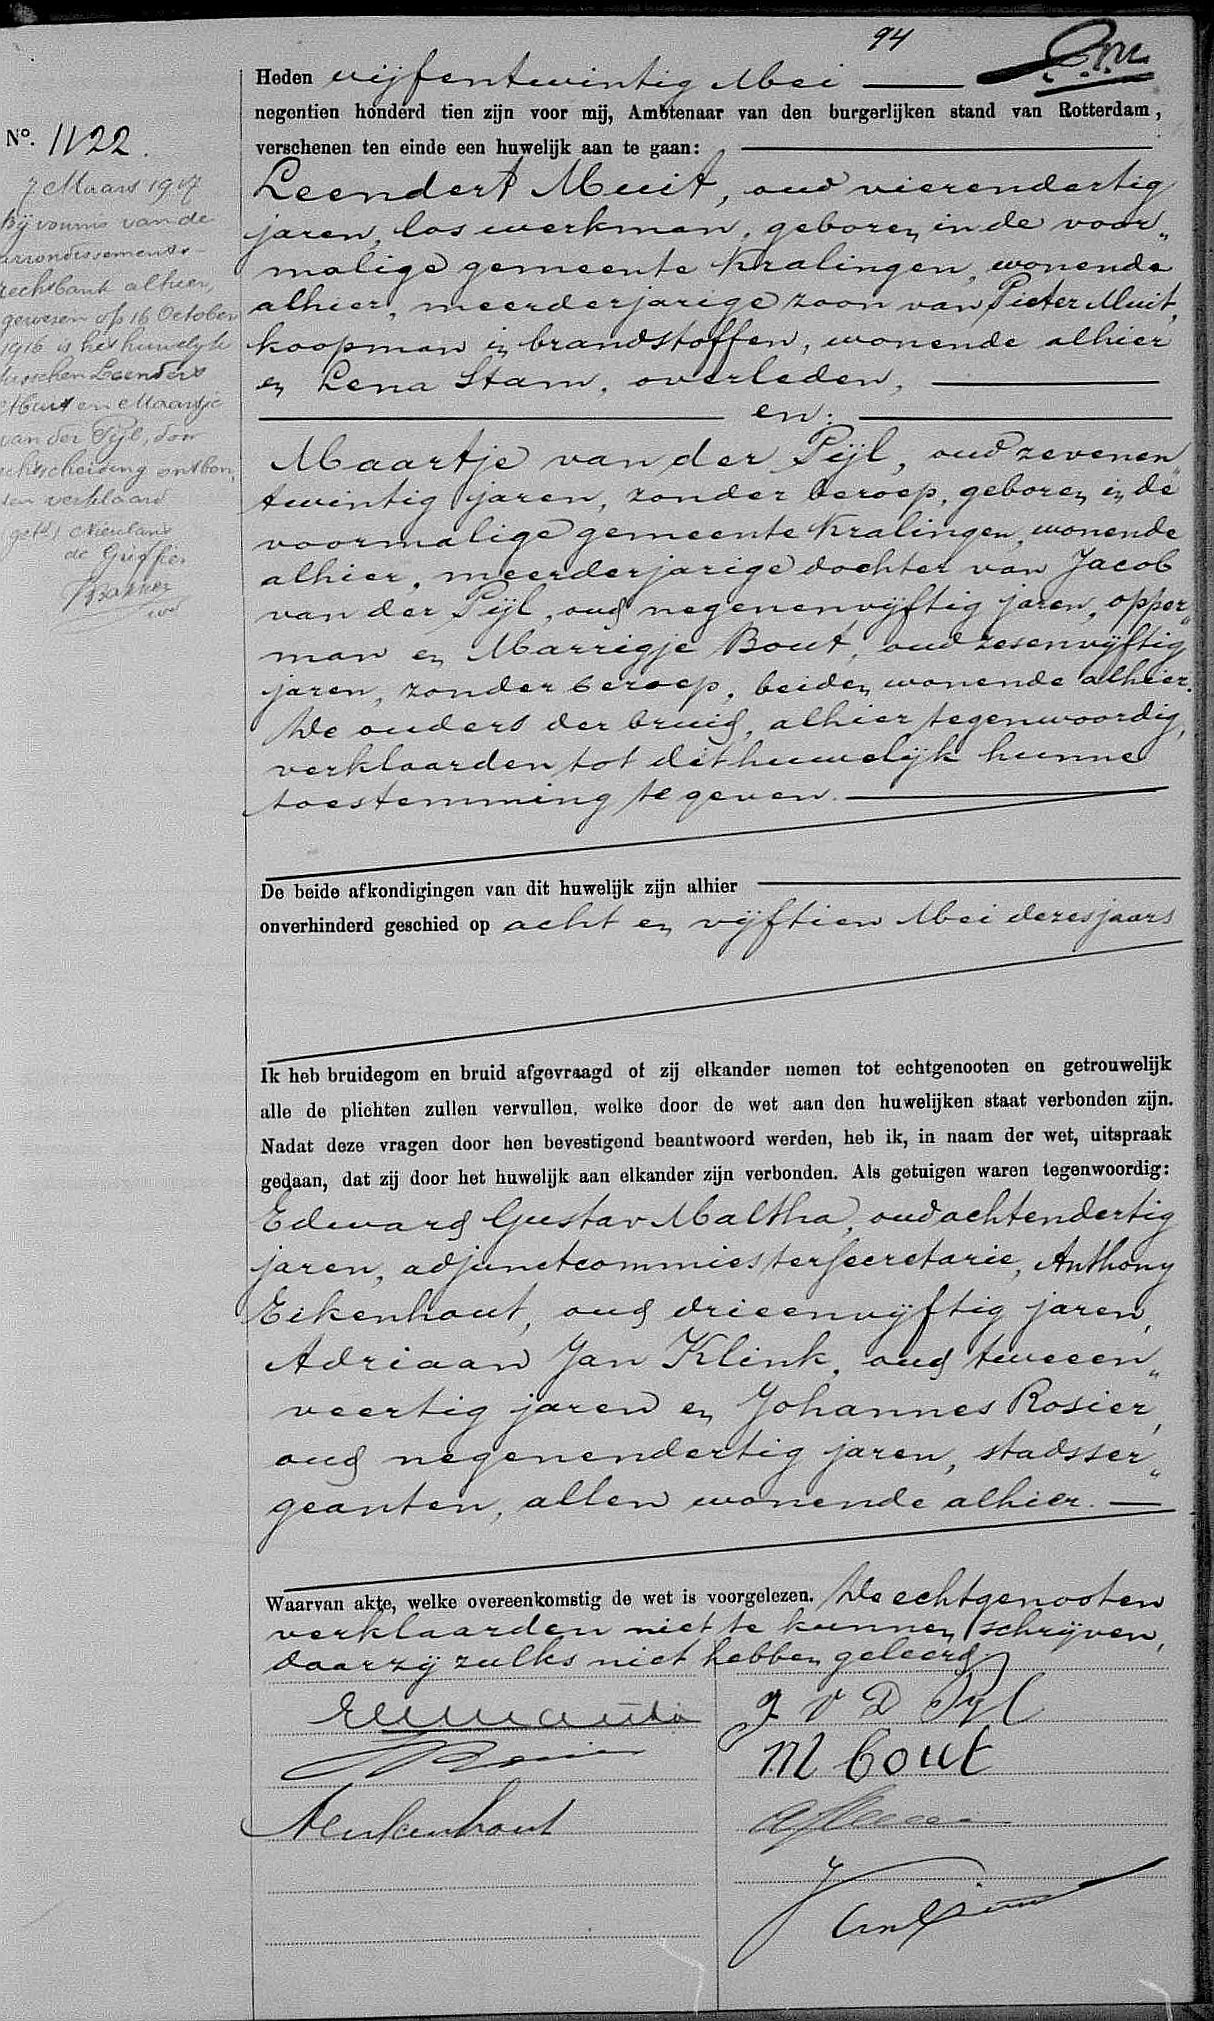 94
Heden vijfentwintig Mei
negentien honderd tien zijn voor mij, Ambtenaar van den burgerlijken stand van Rotterdam,
verschenen ten einde een huwelijk aan te gaan:
No. 1122.
7 Maart 1917
Bij vonnis van de
arrondissements-
rechtbank alhier,
gewezen op 16 October
1916 is het huwelijk
tusschen Leendert
Muit en Maartje
van der Pijl, door
echtscheiding ontbon„
den verklaard
de Griffier
Bakker
Leendert Muit, oud vierendertig
jaren, los werkman, geboren in de voor„
malige gemeente Kralingen, wonende
alhier, meerderjarige zoon van Pieter Muit,
koopman in brandstoffen, wonende alhier
en Lena Stam, overleden,
en:
Maartje van der Pijl, oud zevenen„
twintig jaren, zonder beroep, geboren in de
voormalige gemeente Kralingen, wonende
alhier, meerderjarige dochter van Jacob
van der Pijl, oud negenenvijftig jaren, opper„
man en Marrigje Bout, oud zesenvijftig
jaren, zonder beroep, beiden wonende alhier.
De ouders der bruid, alhier tegenwoordig,
verklaarden tot dit huwelijk hunne
toestemming te geven.
De beide afkondigingen van dit huwelijk zijn alhier
onverhinderd geschied op acht en vijftien Mei dezes jaars
Ik heb bruidegom en bruid afgevraagd of zij elkander nemen tot echtgenooten en getrouwelijk
alle de plichten zullen vervullen, welke door de wet aan den huwelijken staat verbonden zijn.
Nadat deze vragen door hen bevestigend beantwoord werden, heb ik, in naam der wet, uitspraak
gedaan, dat zij door het huwelijk aan elkander zijn verbonden. Als getuigen waren tegenwoordig:
Edward Gustav Maltha, oud achtendertig
jaren, adjunctcommies ter secretarie, Anthony
Eikenhout, oud drieenvijftig jaren,
Adriaan Jan Klink, oud tweeen„
veertig jaren en Johannes Rosier,
oud negenendertig jaren, stadsser„
geanten, allen wonende alhier.
Waarvan akte, welke overeenkomstig de wet is voorgelezen. De echtgenooten
verklaarden niet te kunnen schrijven,
daar zij zulks niet hebben geleerd
J V D Pyl
M bout
AEikenhout